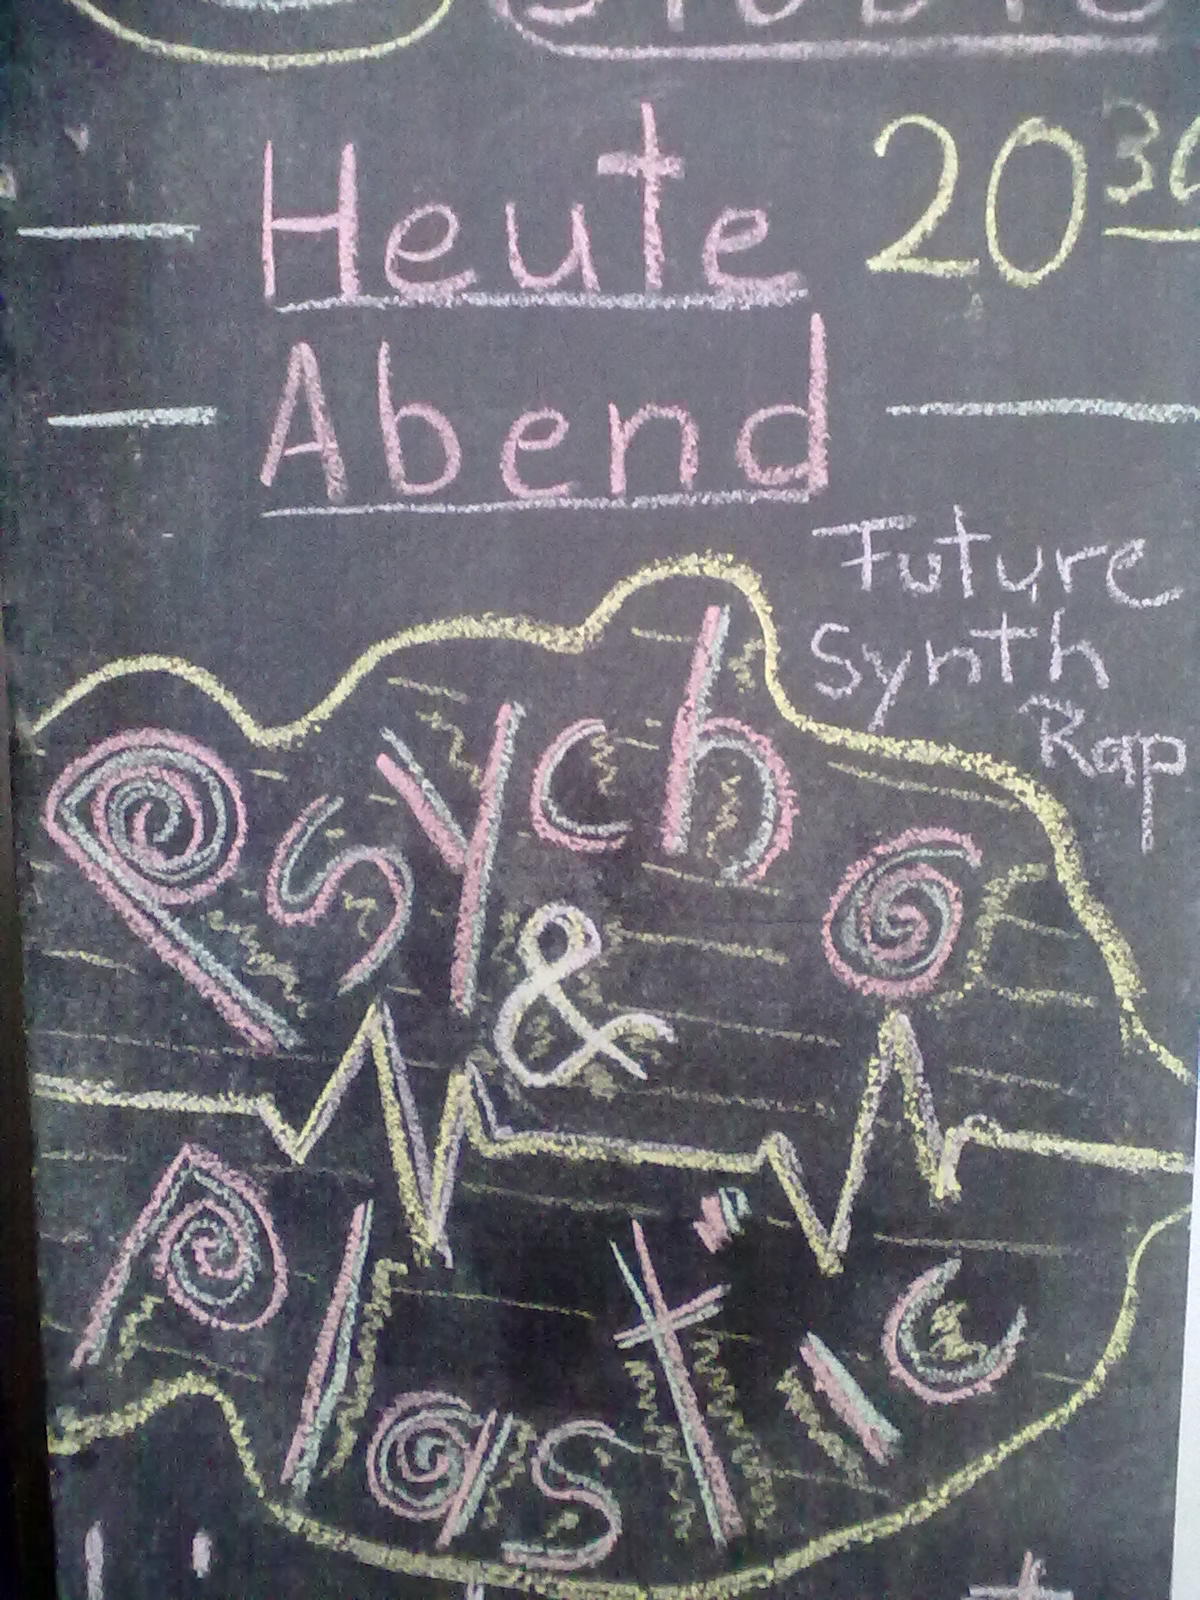 Heute 20 30
Abend
Future
Synth
Rap
Psycho
&
Plastic